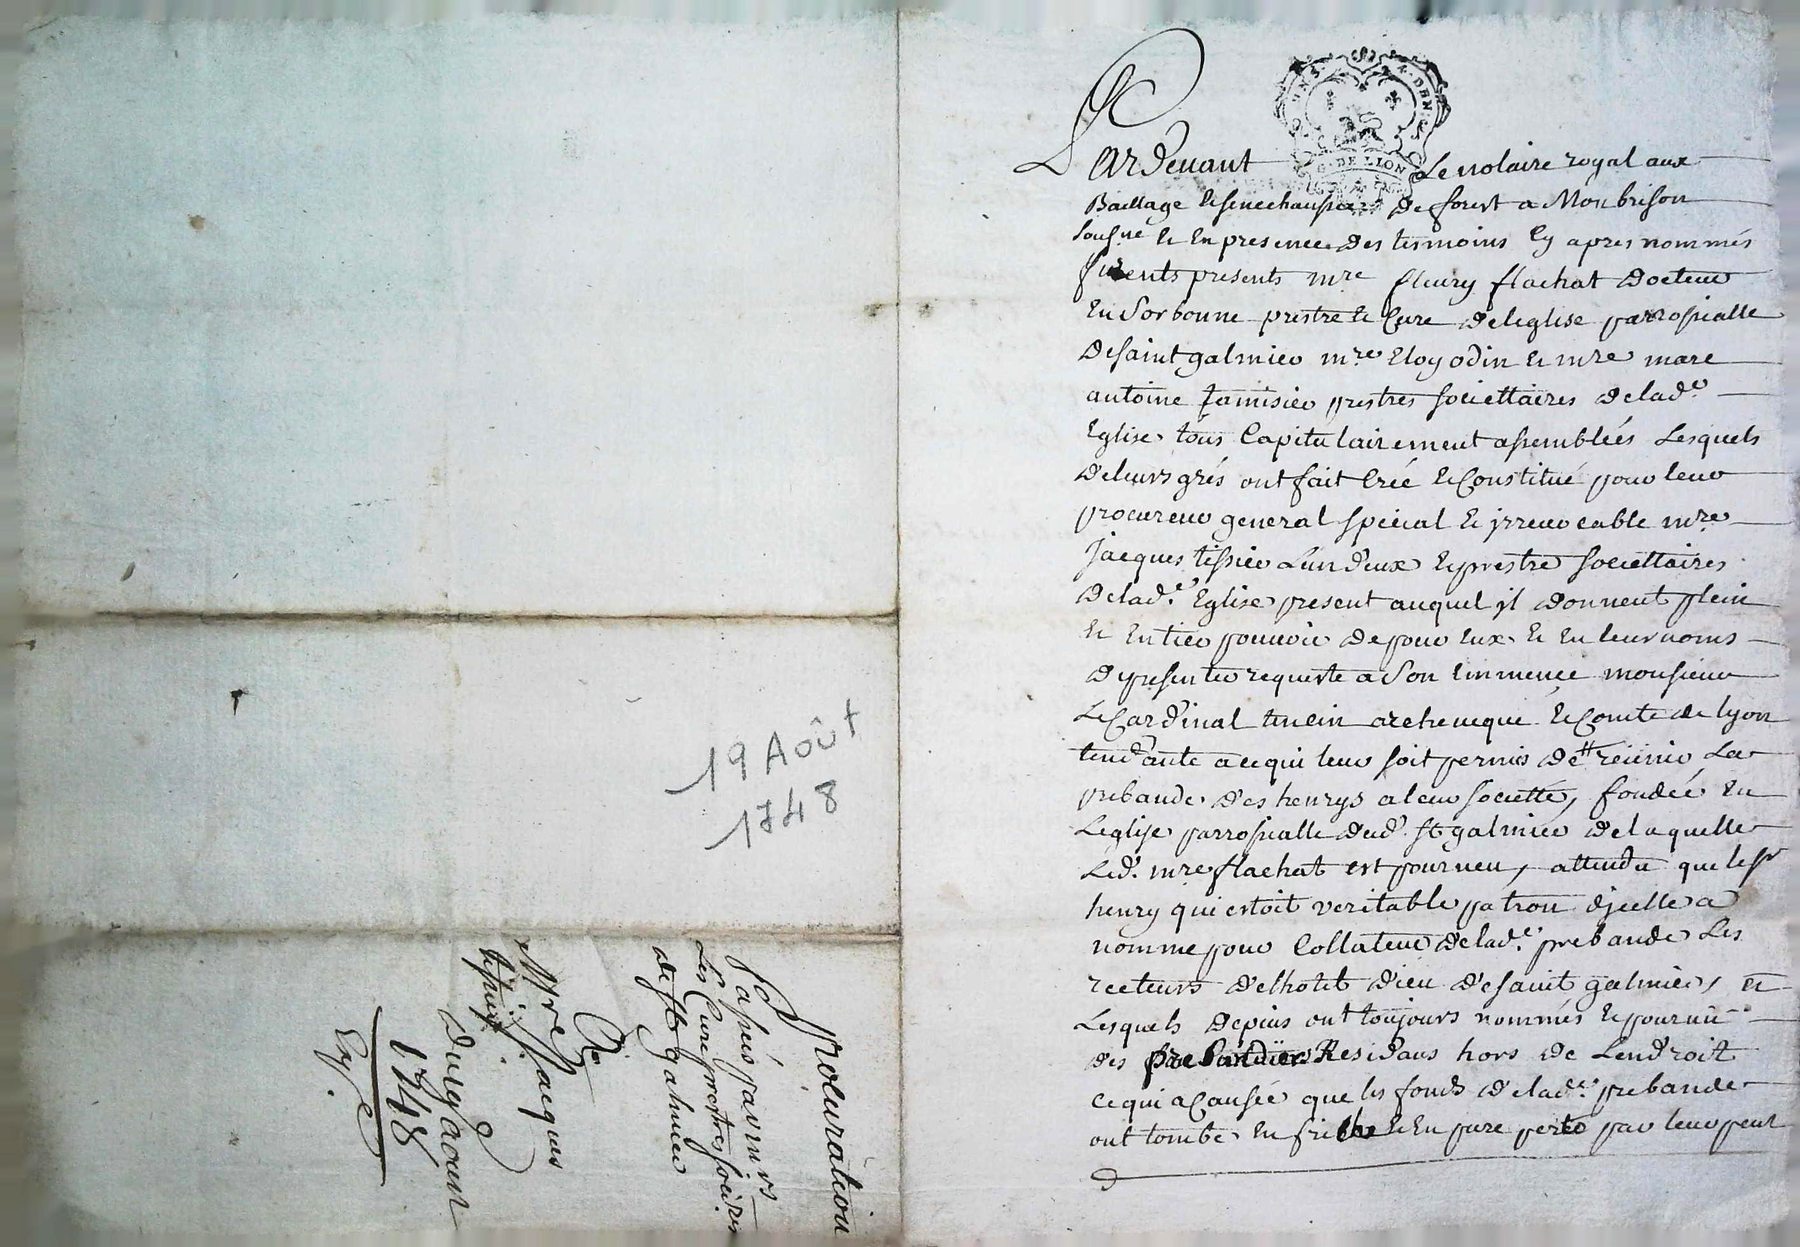 19 Août
1748
Procuration
passée par mrs
Les Curé prestres soci.res
de St galmier
A
Mre Jacques
tissier.
Du 19 aoust
1748
Exp.e
G. DE LION
Pardevant Le notaire royal aux
Bailliage & senechaussée de forest a Monbrison
sousné & En presence des tesmoins Cy apres nommés
furents presents mre fleury flachat Docteur
En Sorbonne prestre & Cure de leglise parrossialle
de saint galmier mre Eloy odin & mre marc
antoine Jamisier prestres societtaires de lad.e
Eglise tous Capitulairement assemblées Lesquels
de leurs grés ont fait Créé & Constitué pour leur
procureur general special & jrrevocable mre
Jacques tissier Lun deux & prestre societtaires
de lad.e Eglise present auquel jl donnent plein
& Entier pouvoir de pour Eux & En leur noms
de presenter requeste a Son Eminence monsieur
Le Cardinal tencin archeveque & Comte de lyon
tendante a ce qui leur soit permis de reünir La
prebande des henrys a leur societté, fondée En
Leglise parrossialle dud. St galmier de laquelle
Led. mre flachat est pourveu, attendu que le sr
henry qui estoit veritable patron djcelle a
nomme pour Collateur de lad.e prebande Les
recteurs de lhotel dieu de saint galmier, et
Lesquels depuis ont toujours nommés & pourvû
des prebandiers Residans hors de Lendroit
ce qui a Causée que les fonds de lad.e prebande
ont tombé En friche & En pure perte par leur peu